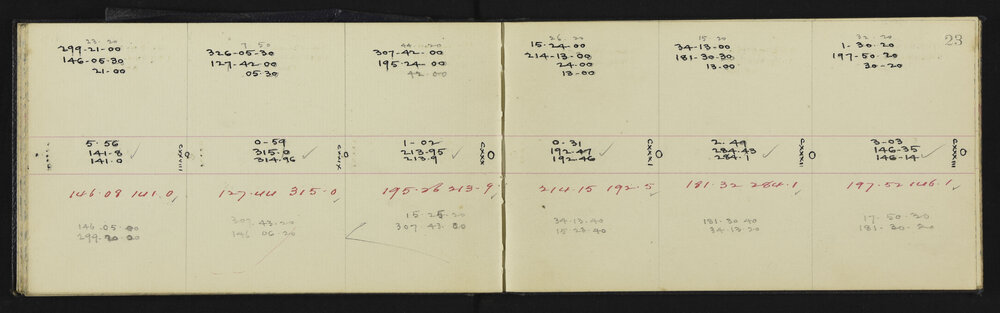 23
23 20
299-21-00
146-05-30
21-00
7 50
326-05-30
127-42-00
05-30
44 20
307-42-00
195-24-00
42-00
26 20
15-24-00
214-13-00
24-00
13-00
15 20
34-13-00
181-30-30
13-00
32 20
1-30-20
197-50-20
30-20
5.56
141.8
141.0
CXXVIII
0-59
315.0
314.96
CXXIX
1-02
213.95
213.9
CXXX
0.31
192.47
192.46
CXXXI
2.49
284.43
284.1
CXXXII
3-03
146-35
146-14
CXXXIII
146.08 141.0
127.44 315.0
195-26 213-9
214-15 192.5
181.32 284.1
197.52 146.1
146-05-00
299-20-00
307.43.20
146 06.20
15 25.20
307.43.20
34-13.40
15-23-40
181-30 40
34-13-20
17-50-20
181-30-20